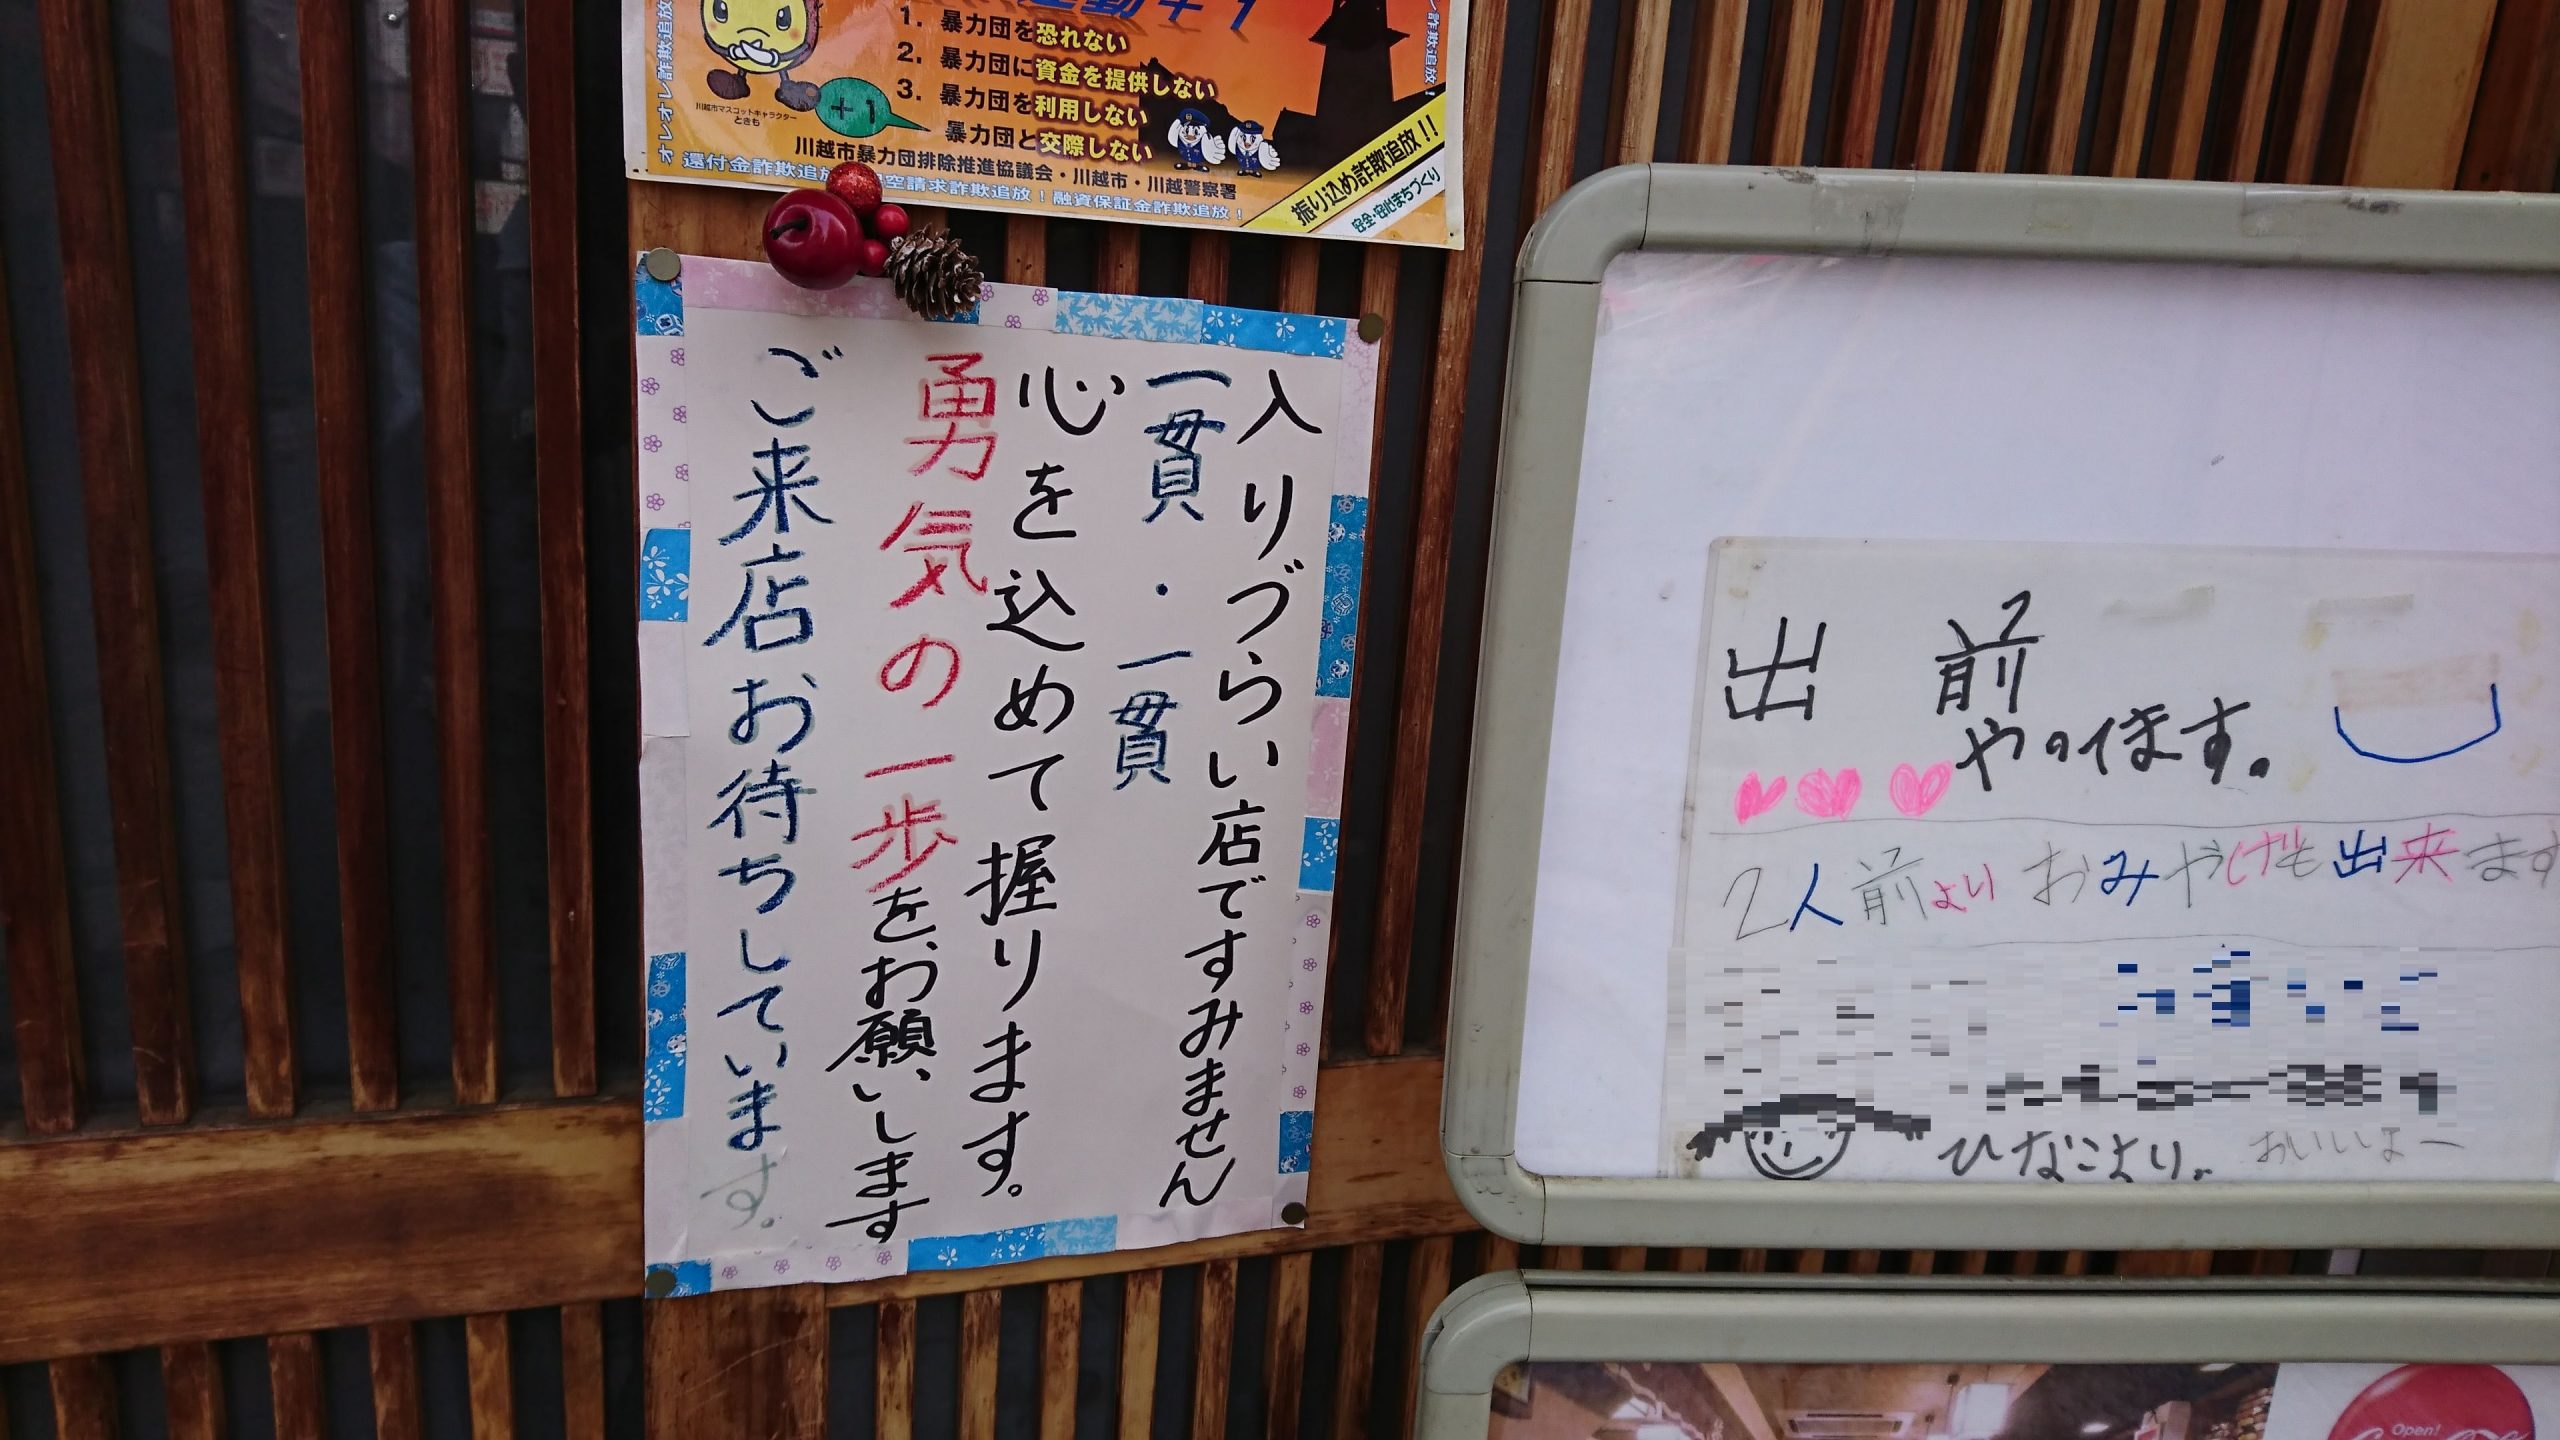 1. 暴力団を恐れない
2. 暴力団に資金を提供しない
3. 暴力団を利用しない
+1 暴力団と交際しない
川越市マスコットキャラクター
ときも
川越市暴力団排除推進協議会・川越市・川越警察署
空請求詐欺追放!融資保証金詐欺追放!
還付金詐欺追放
オレオレ詐欺追放
詐欺追放!
振り込め詐欺追放!!
安全・安心まちづくり
入りづらい店ですみません
一貫・一貫
心を込めて握ります。
勇気の一歩を、お願いします
ご来店お待ちしています。
出前
やってます。
2人前よりおみやげも出来ます
ひなこより。
おいしいよー
Open!